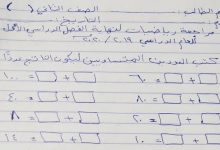 الطالب / الصف الثاني ( )
مراجعة رياضيات لنهاية الفصل الدراسي الأول
العام الدراسي ٢٠١٩ / ٢٠٢٠
اكتب العددين المتساويين ليكون الناتج عددا
١٠٠ = □ + □ ٦٠ = □ + □
٤٠ = □ + □ ٨٠ = □ + □
٨ = □ + □ ٢٠ = □ + □
١٤ = □ + □ ١٠ = □ + □